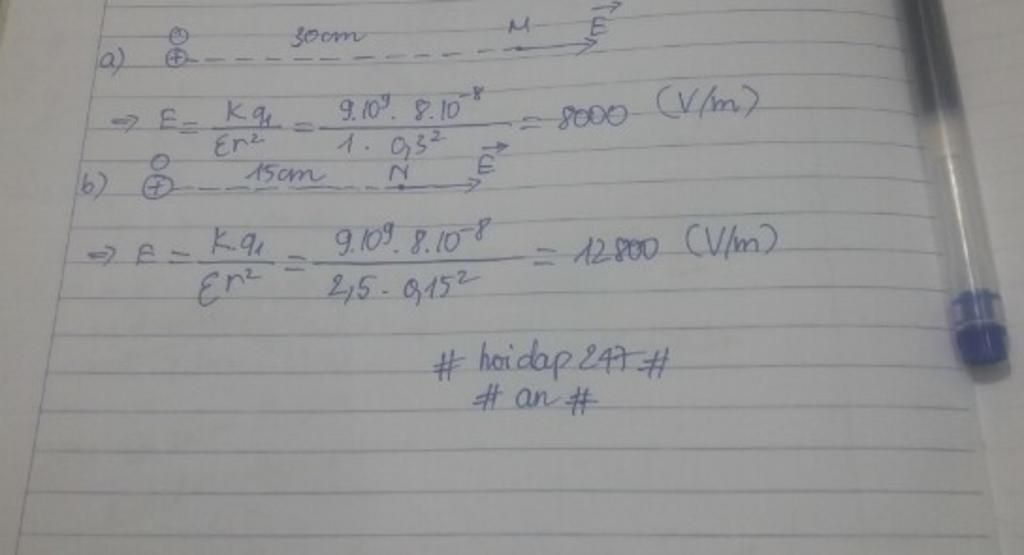 30cm M E
a) O +
=> E = K q₁ / εr² = 9.10⁹. 8.10⁻⁸ / 1. 0,3² = 8000 (V/m)
O 15cm N E
b) +
=> E = K.q₁ / εr² = 9.10⁹. 8.10⁻⁸ / 2,5. 0,15² = 12800 (V/m)
# hoidap 247 #
# an #